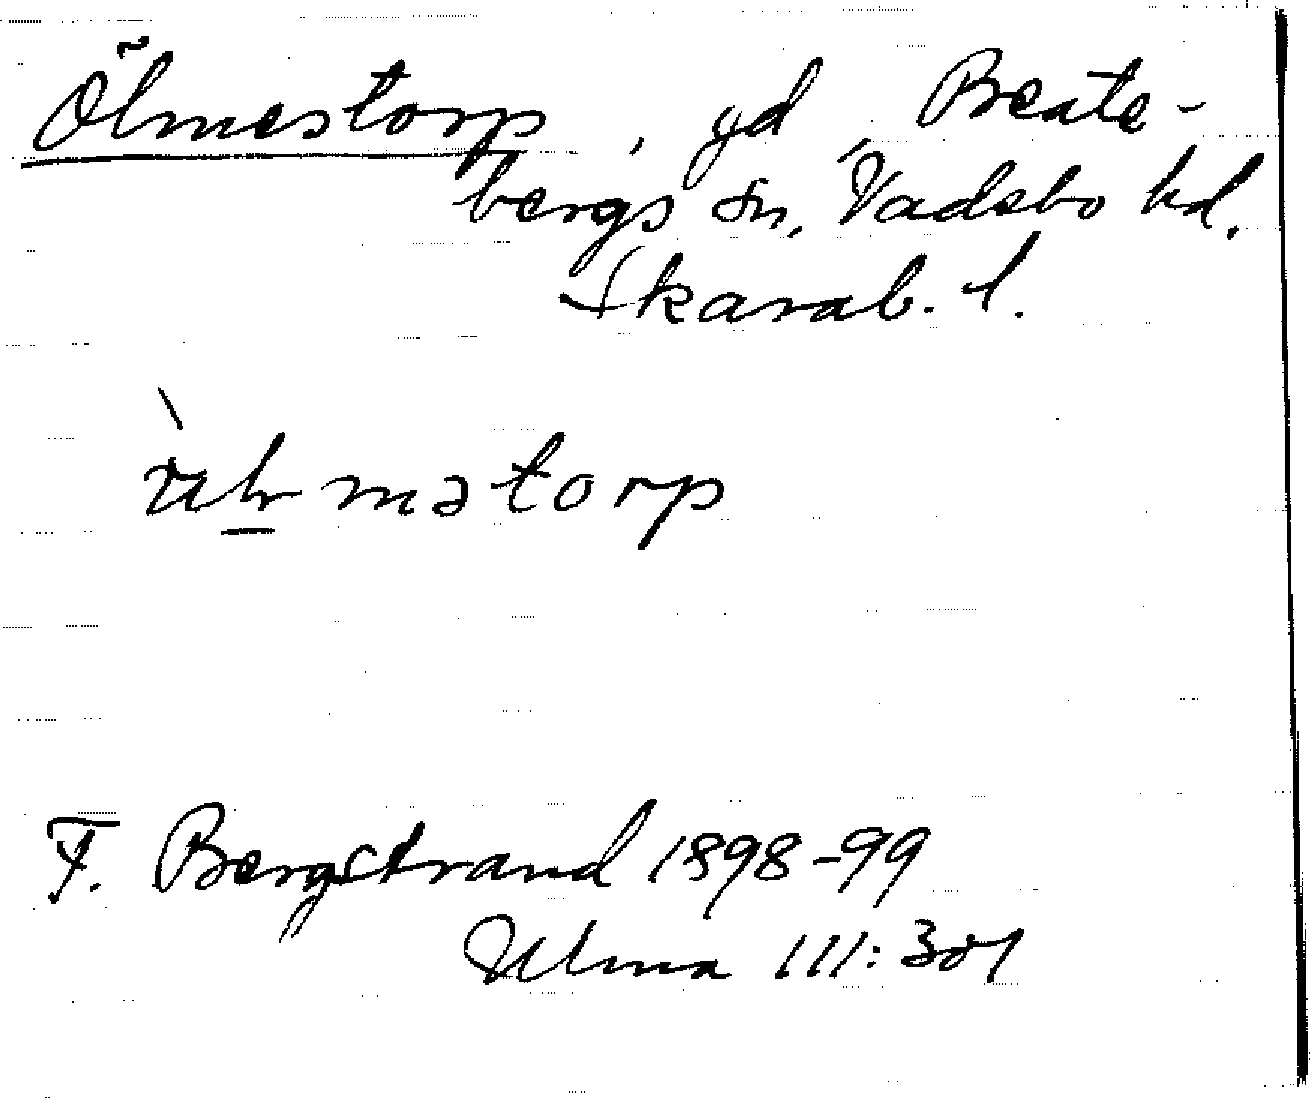 Ölmestorp, gd, Beate-
bergs sn, Vadsbo hd.
Skarab. l.
matorp
F. Bergstrand 1898-99
Ulma 111:301